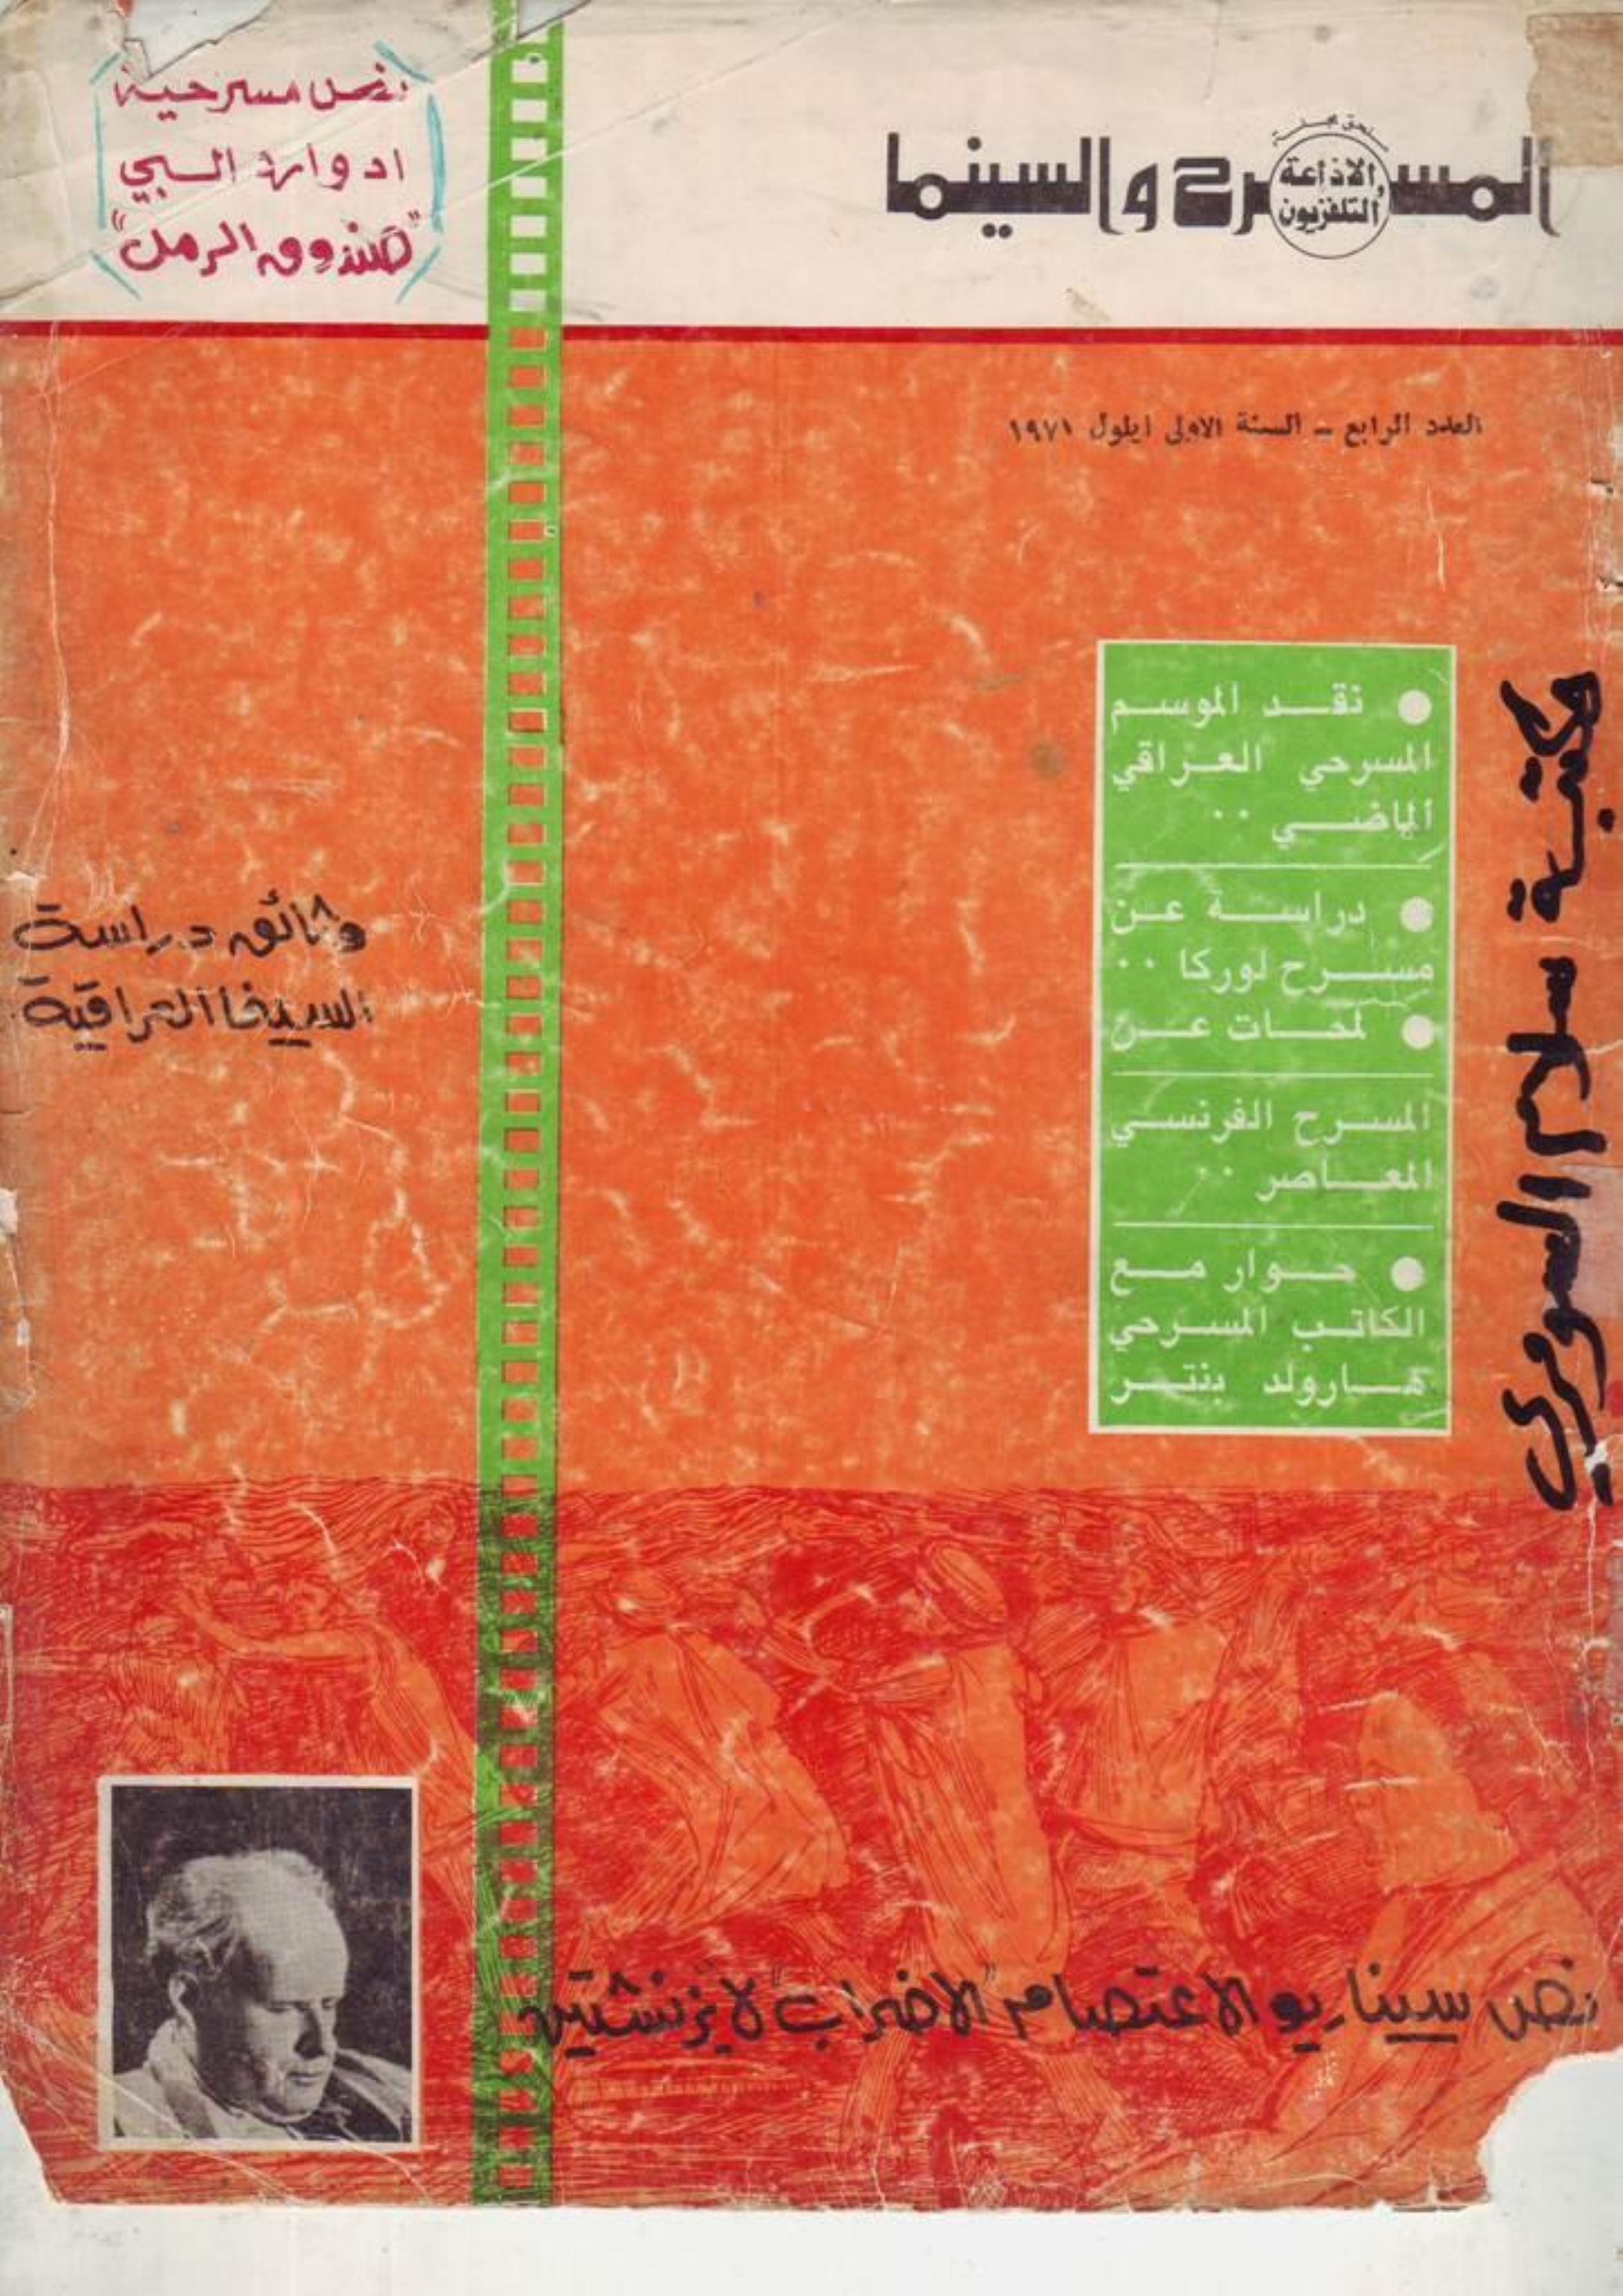 المسرح والسينما
ملحق مجلة
الاذاعة
والتلفزيون
نص مسرحية
ادوارد البي
"صندوق الرمل"
العدد الرابع – السنة الاولى ايلول ١٩٧١
● نقد الموسم
المسرحي العراقي
الماضي ..
● دراسة عن
مسرح لوركا ..
● لمحات عن
المسرح الفرنسي
المعاصر ..
● حوار مع
الكاتب المسرحي
هارولد بنتر
مكتبة سلام السومري
وثائق دراسة
السينما العراقية
نص سيناريو الاعتصام "الاضراب" لايزنشتين